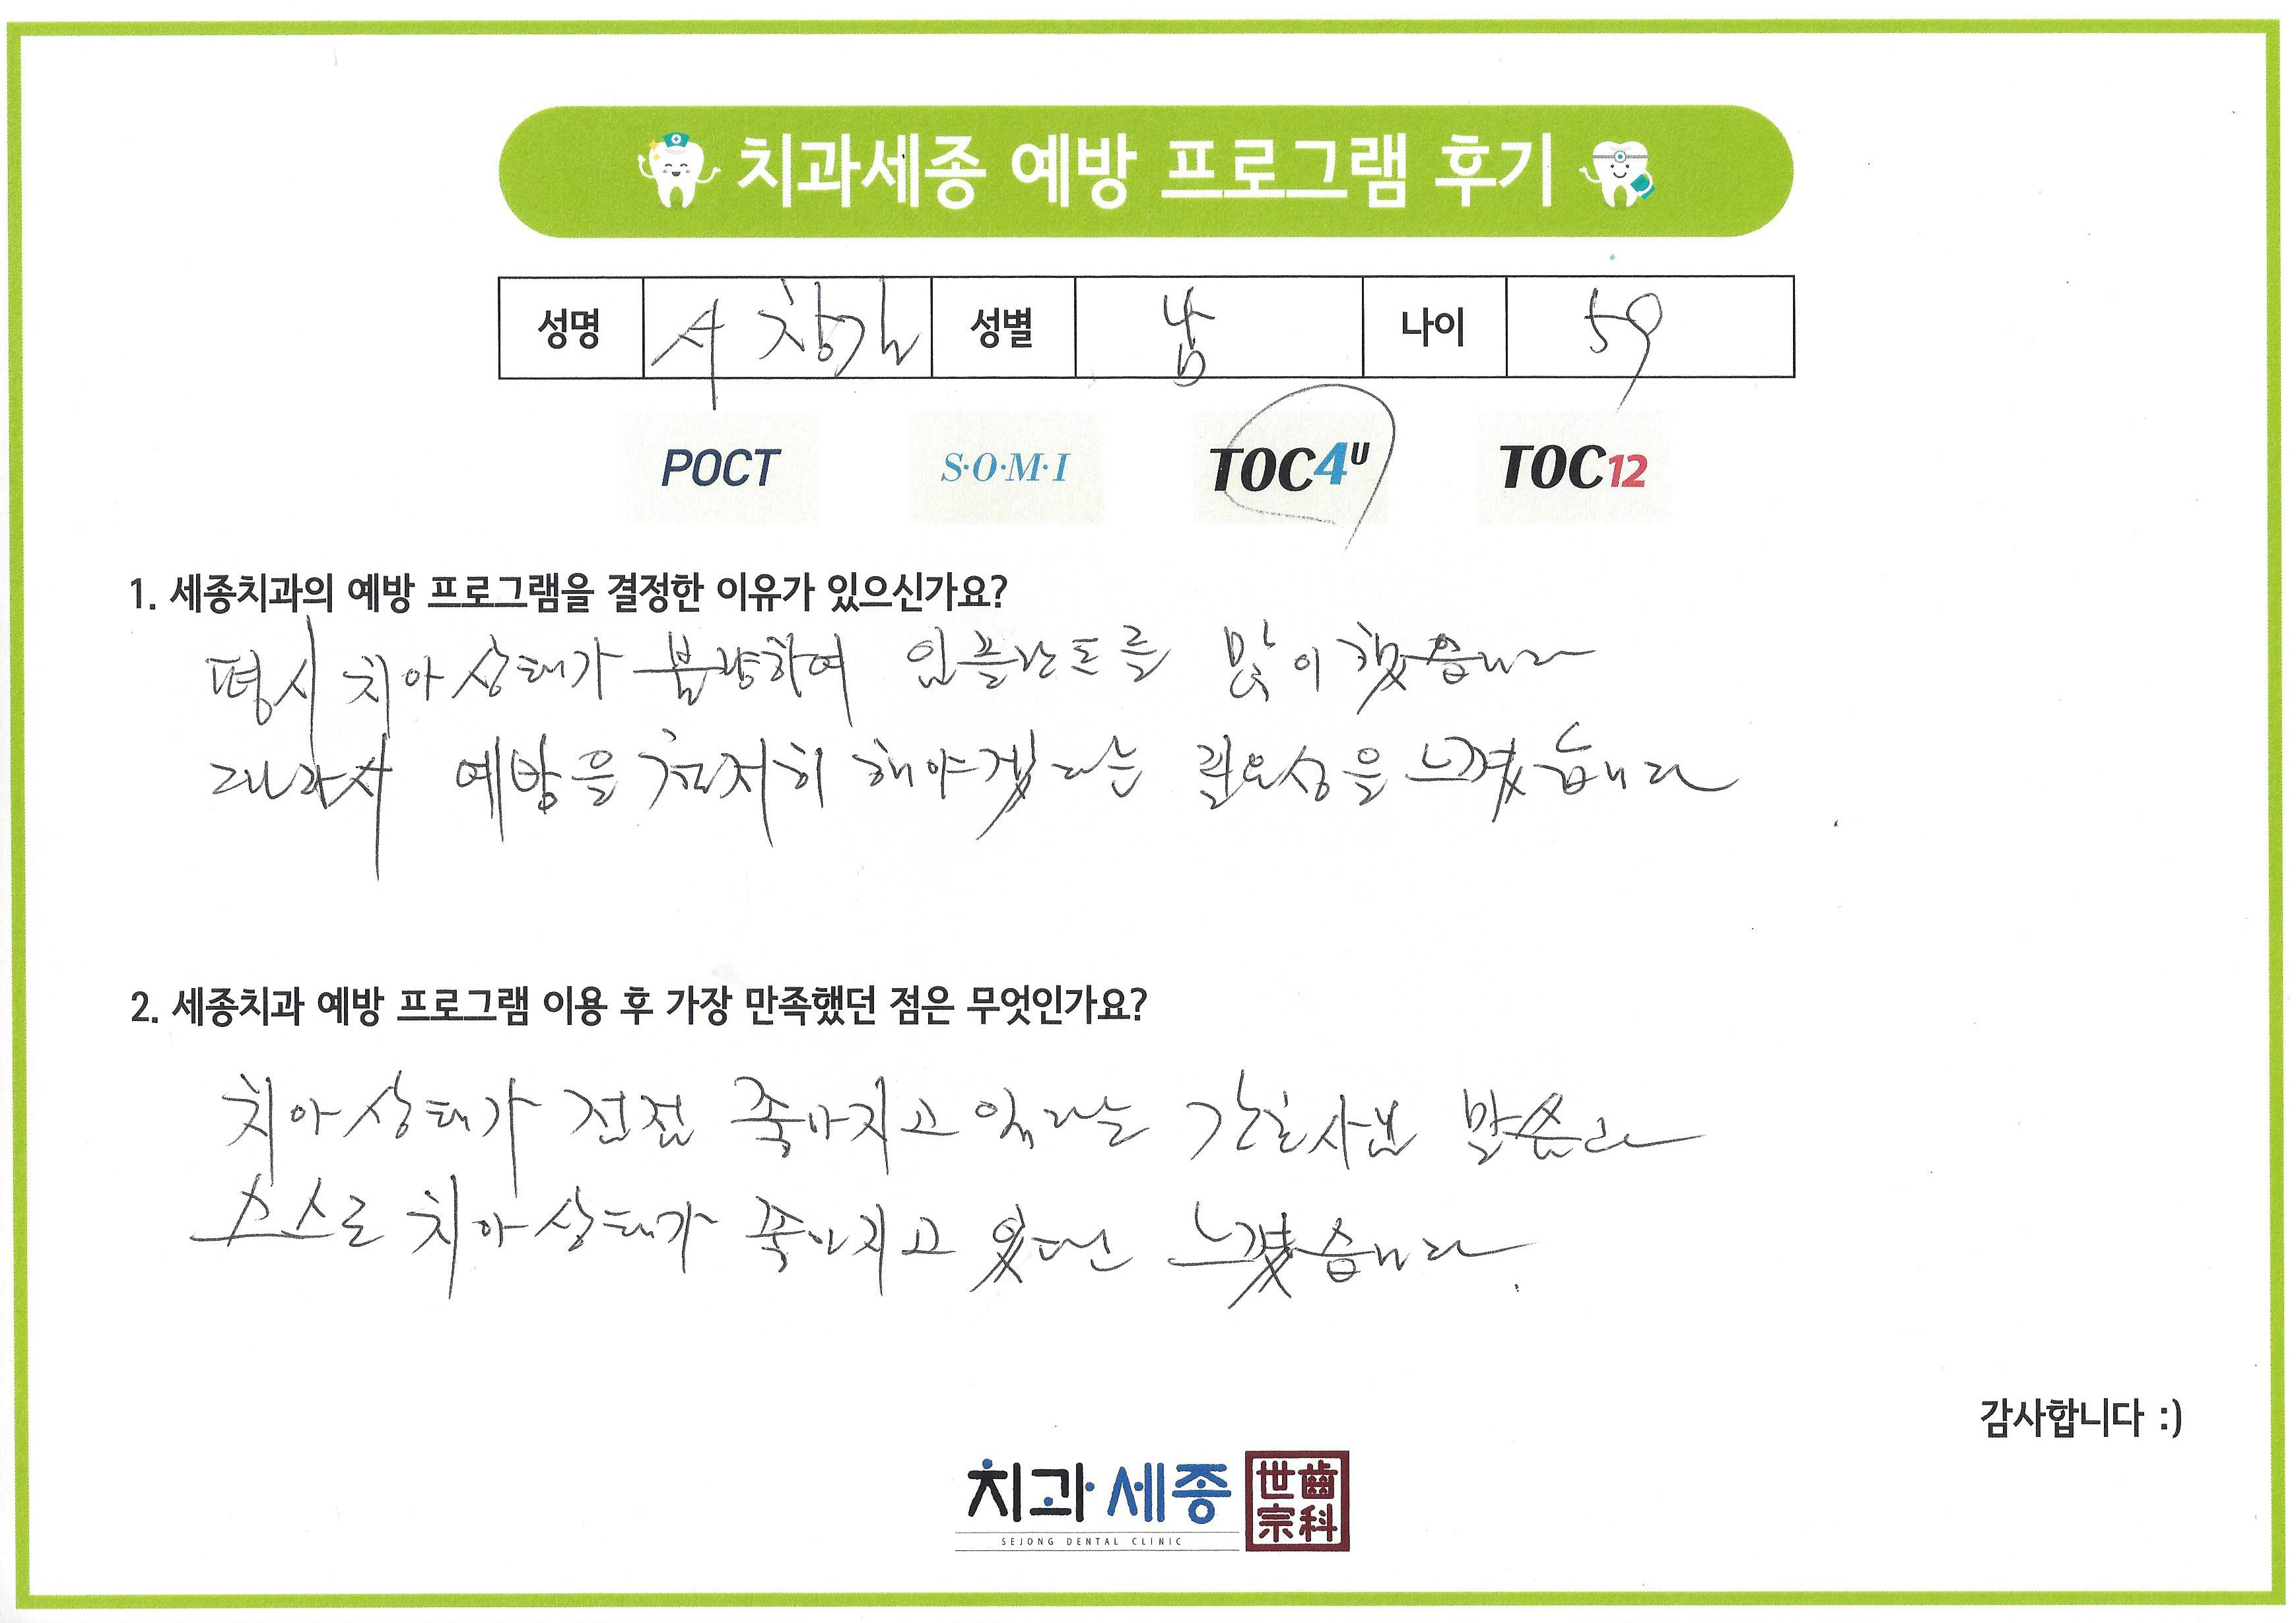 치과세종 예방 프로그램 후기
성명 서창길 성별 남 나이 59
POCT S·O·M·I TOC4U TOC12
1. 세종치과의 예방 프로그램을 결정한 이유가 있으신가요?
평시 치아상태가 불량하여 임플란트를 많이 했습니다
따라서 예방을 철저히 해야겠다는 필요성을 느꼈습니다
2. 세종치과 예방 프로그램 이용 후 가장 만족했던 점은 무엇인가요?
치아상태가 점점 좋아지고 있다는 간호사님 말씀과
스스로 치아상태가 좋아지고 있다는 느꼈습니다.
감사합니다 :)
치과세종 世齒宗科
SEJONG DENTAL CLINIC